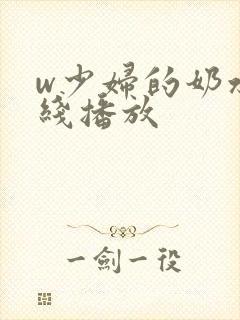 w少婦的奶水
綫播放
一劍一役